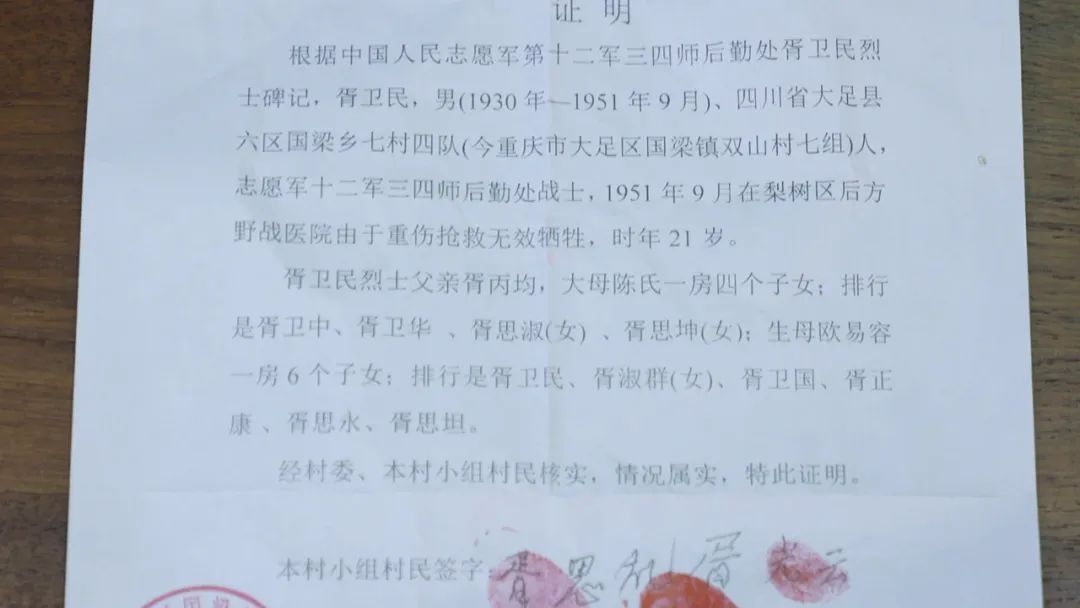 证 明
根据中国人民志愿军第十二军三四师后勤处胥卫民烈
士碑记，胥卫民，男(1930 年—1951 年 9 月)、四川省大足县
六区国梁乡七村四队(今重庆市大足区国梁镇双山村七组)人，
志愿军十二军三四师后勤处战士，1951 年 9 月在梨树区后方
野战医院由于重伤抢救无效牺牲，时年 21 岁。
胥卫民烈士父亲胥丙均，大母陈氏一房四个子女；排行
是胥卫中、胥卫华 、胥思淑(女) 、胥思坤(女)；生母欧易容
一房 6 个子女；排行是胥卫民、胥淑群(女)、胥卫国、胥正
康 、胥思永、胥思坦。
经村委、本村小组村民核实，情况属实，特此证明。
本村小组村民签字：胥思 胥 云
国